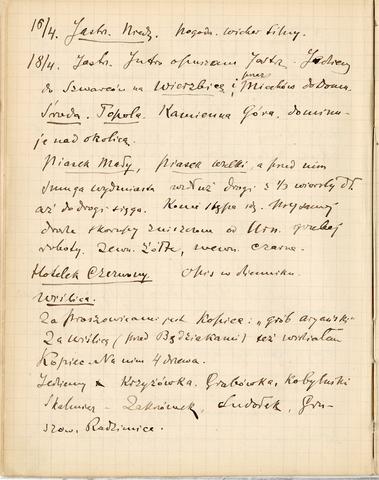 16/4. Jastr. Niedz. Pogoda. Wicher silny.
18/4. Jastr. Jutro opuszczam Jastr. Jedziemy
do Szwarców na Wierzbicę i przez Miechów do Domu.
Środa. Topola. Kamienna Góra, dominu-
je nad okolicą.
Piasek Mały, Piasek Wielki, a przed nim
smuga wydmiasta wzdłuż drogi z 1/3 wiorsty dł.
aż do drogi sięga. Koni idą. Przy samej
drodze skorupy zniszczone od Urn. grubej
roboty. Zewn. żółte, wewn. czarne.
Hotelek Czerwony. Opis w dzienniku.
Wiślica.
Za Proszowicami jest Kopiec: „grób aryański"
Za Wiślicą (przed Będziakami) też widziałem
Kopiec. Na nim 4 drzewa.
Jedziemy Krzyżówka, Grabówka, Kobylniki
Skalmierz - Zakrzówek, Sudołek, Gru-
szów, Radzimice.